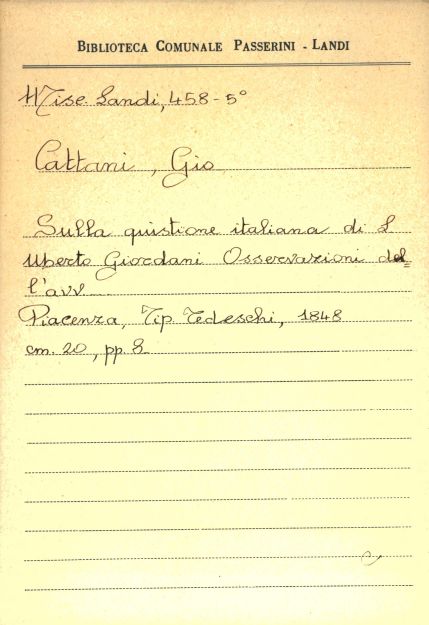 BIBLIOTECA COMUNALE PASSERINI - LANDI
Misc. Landi, 458-5°
Cattani, Gio
Sulla quistione italiana di L
Uberto Giordani Osservazioni del=
l'avv
Piacenza, Tip. Tedeschi, 1848
cm. 20, pp. 8